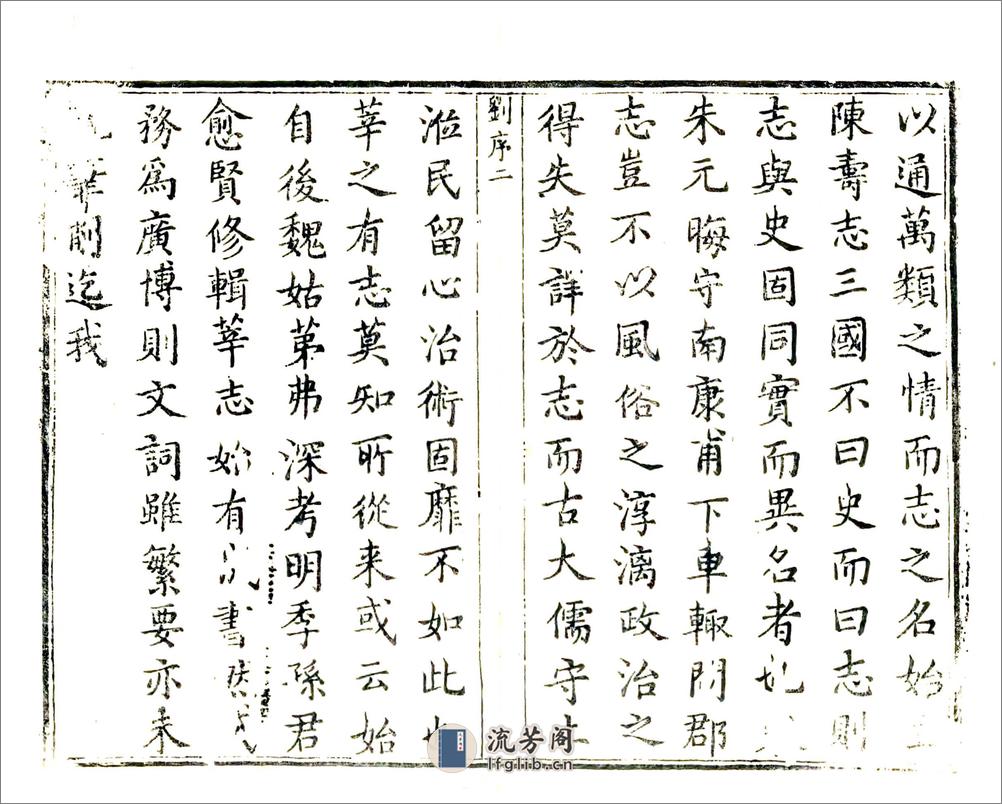 以通萬類之情而志之名始
陳壽志三國不曰史而曰志則
志與史固同實而異名者也
朱元晦守南康甫下車輙問郡
志豈不以風俗之淳漓政治之
得失莫詳於志而古大儒守土
劉序二
涖民留心治術固靡不如此也
莘之有志莫知所從来或云始
自後魏姑苐弗深考明季孫君
愈賢修輯莘志始有成書
務爲廣博則文詞雖繁要亦未
筆削迄我
流芳阁
lfglib.cn